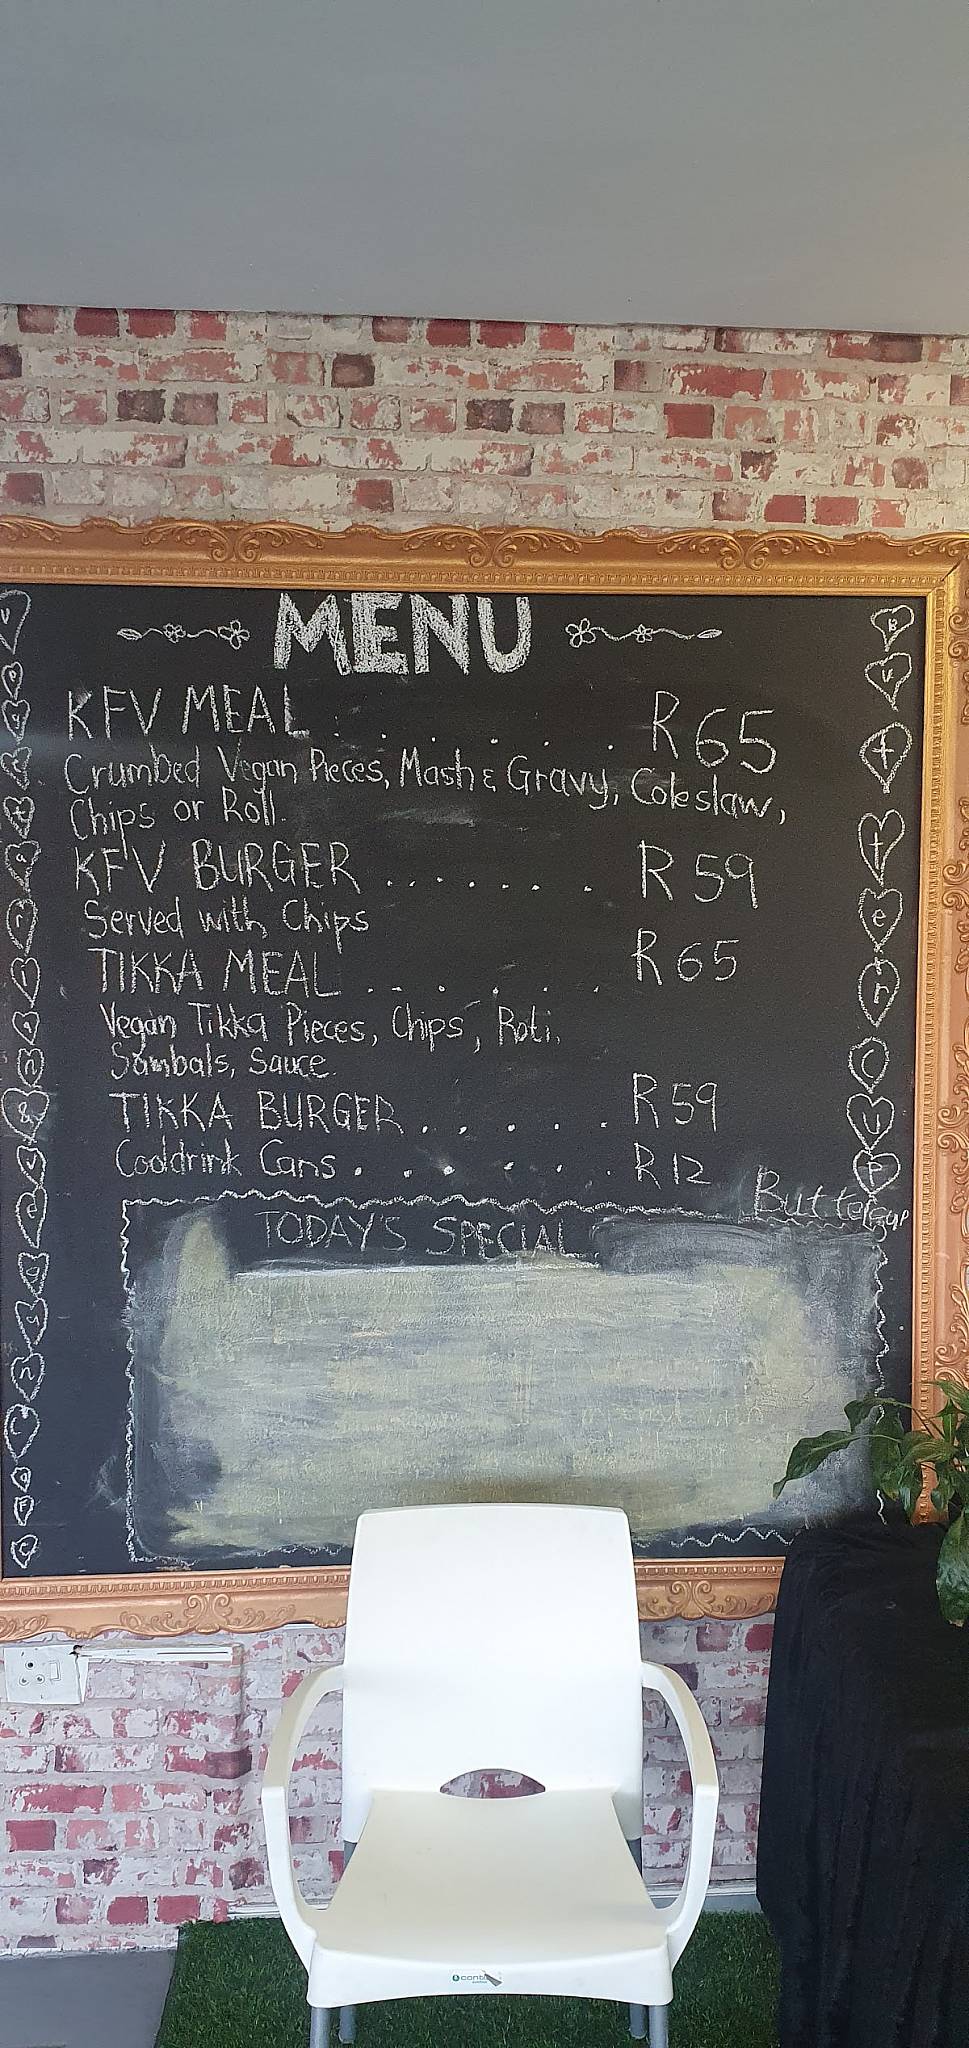 MENU
KFV MEAL . . . . . . . R65
Crumbed Vegan Pieces, Mash & Gravy, Coleslaw,
Chips or Roll.
KFV BURGER . . . . . . . R59
Served with Chips
TIKKA MEAL . . . . . . . R65
Vegan Tikka Pieces, Chips, Roti,
Sambals, Sauce.
TIKKA BURGER . . . . . . R59
Cooldrink Cans . . . . . . . R12
Buttercup
TODAY'S SPECIAL
Vegetarian & Vegan Cafe
ButterCup